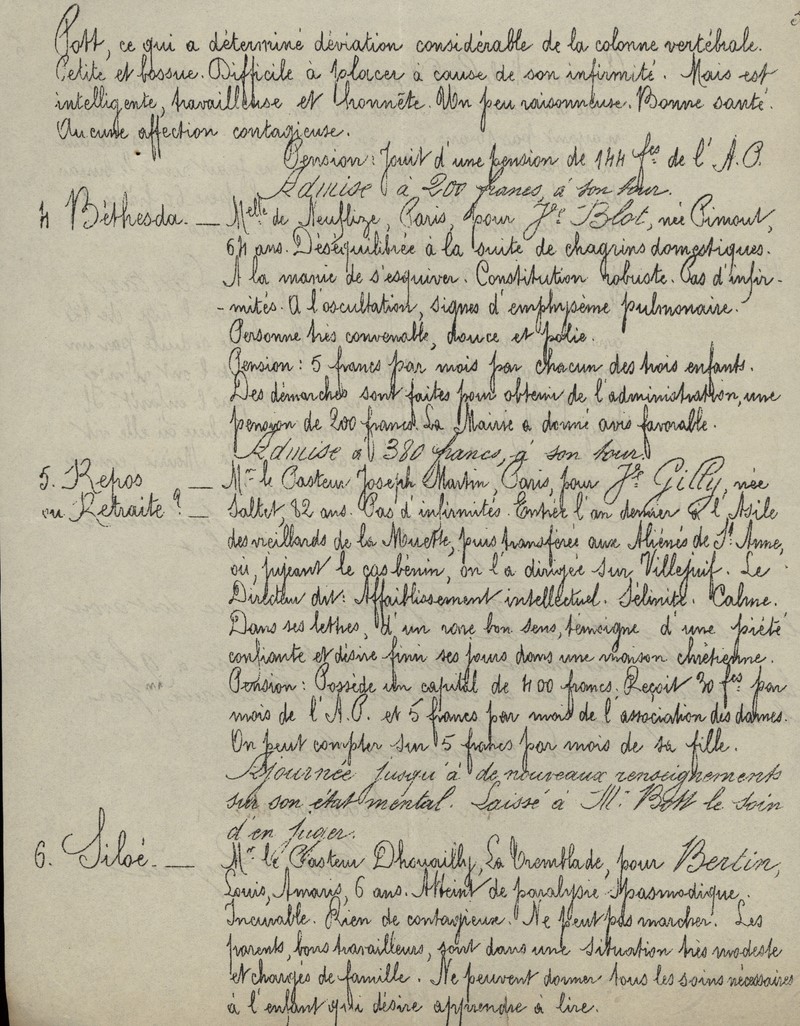 Pott, ce qui a déterminé déviation considérable de la colonne vertébrale.
Petite et bossue. Difficile à placer à cause de son infirmité. Mais est
intelligente, travailleuse et honnête. Un peu raisonneuse. Bonne santé.
Aucune affection contagieuse.
Pension : Jouit d'une pension de 144 fcs de l'A.P.
Admise à 200 francs, à son tour.
4 Béthesda. — Melle de Neuflize, Paris, pour Ve Blot, née Pimont,
64 ans. Déséquilibrée à la suite de chagrins domestiques.
A la manie de s'esquiver. Constitution robuste. Pas d'infir-
-mités. A l'oscultation, signes d'emphysème pulmonaire.
Personne très convenable, douce et polie.
Pension : 5 francs par mois par chacun des trois enfants.
Des démarches sont faites pour obtenir de l'administration, une
pension de 200 francs. La Mairie a donné avis favorable.
Admise à 380 francs, à son tour.
5. Repos — Mr le Pasteur Joseph Martin, Paris, pour Ve Gilly, née
ou Retraite ? — Saltet, 82 ans. Pas d'infirmités. Entrée l'an dernier à l'Asile
des vieillards de la Muette, puis transférée aux Aliénés de St Anne,
où, jugeant le cas bénin, on l'a dirigée sur Villejuif. Le
Directeur dit : Affaiblissement intellectuel. Sélinité. Calme.
Dans ses lettres, d'un rare bon sens, témoigne d'une piété
confiante et désire finir ses jours dans une maison chrétienne.
Pension : Possède un capital de 400 francs. Reçoit 30 fcs par
mois de l'A.P. et 5 francs par mois de l'association des dames.
On peut compter sur 5 francs par mois de sa fille.
Ajournée jusqu'à de nouveaux renseignements
sur son état mental. Laissé à Mr Bott le soin
d'en juger.
6. Siloé. — Mr le Pasteur Dhouailly, La Tremblade, pour Bertin,
Louis, Amaris, 6 ans. Atteint de paralysie spasmodique.
Incurable. Rien de contagieux. Ne peut pas marcher. Les
parents, bons travailleurs, sont dans une situation très modeste
et chargés de famille. Ne peuvent donner tous les soins nécessaires
à l'enfant qui désire apprendre à lire.